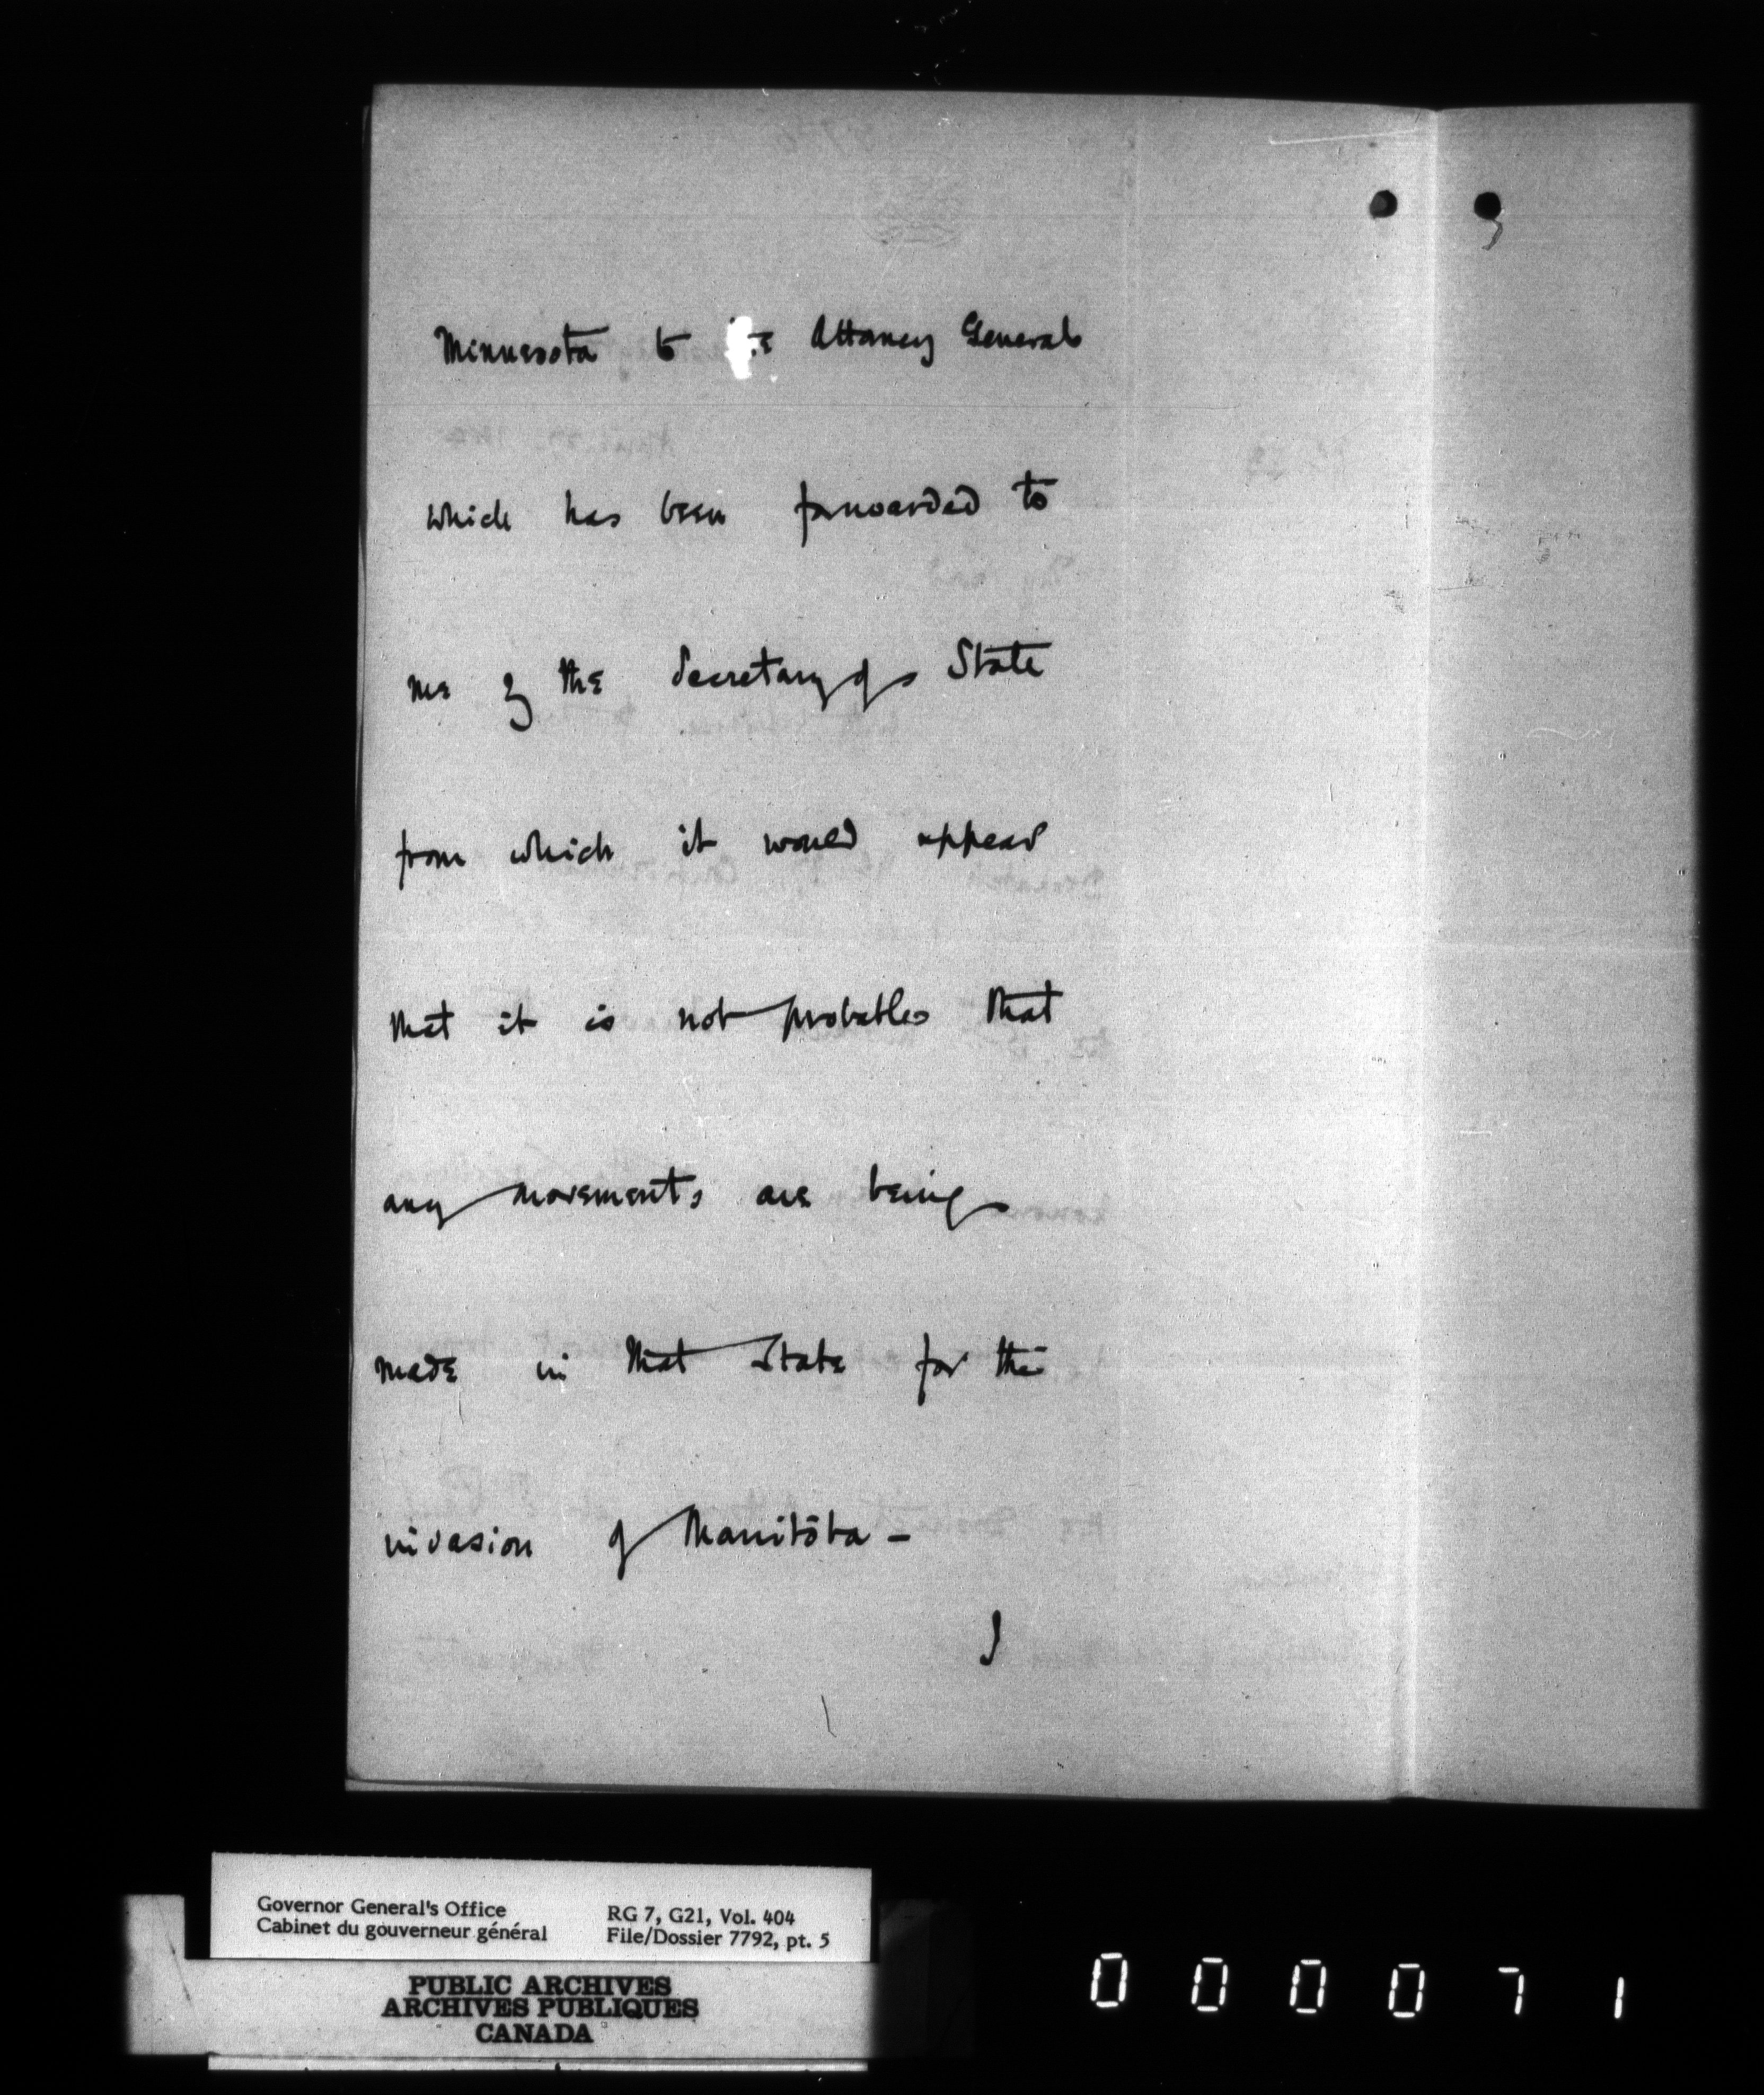 Minnesota to the Attorney General
which has been forwarded to
me by the Secretary of State
from which it would appear
that it is not probable that
any movements are being
made in that State for the
invasion of Manitoba –
I
Governor General's Office
Cabinet du gouverneur général
RG 7, G21, Vol. 404
File/Dossier 7792, pt. 5
PUBLIC ARCHIVES
ARCHIVES PUBLIQUES
CANADA
000071